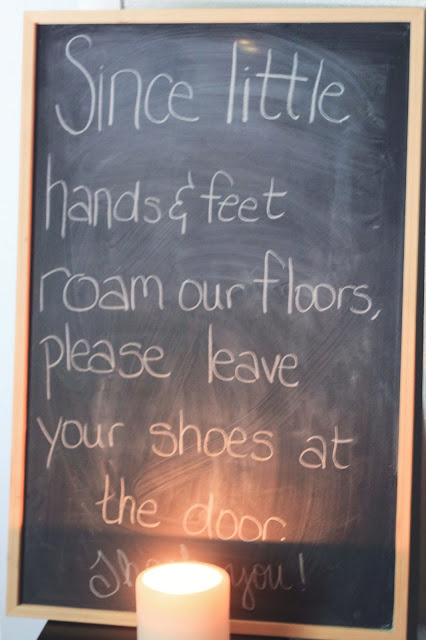 Since little
hands & feet
roam our floors,
please leave
your shoes at
the door.
you!